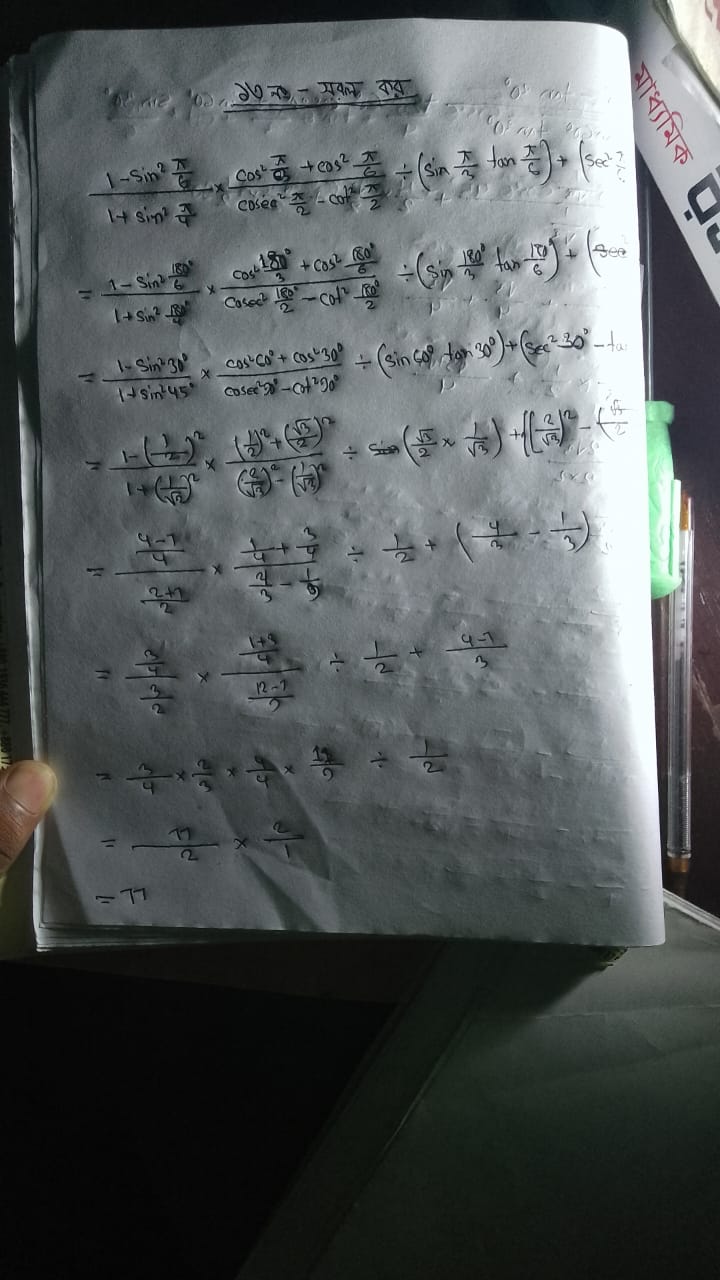 ১৩ নং - সরল কর
(1-sin² π/6)/(1+ sin² π/4) × (cos² π/3 + cos² π/6)/(cosec² π/2 - cot² π/2) ÷ (sin π/3 tan π/6) + (sec²
= (1-sin² 180°/6)/(1+sin² 180°/4) × (cos² 180°/3 + cos² 180°/6)/(cosec² 180°/2 - cot² 180°/2) ÷ (sin 180°/3 tan 180/6) + (sec
= (1-sin²30°)/(1+sin²45°) × (cos²60° + cos²30°)/(cosec²90° - cot²90°) ÷ (sin60° tan30°) + (sec²30° - ta
= (1-(1/2)²)/(1+(1/√2)²) × ((1/2)²+(√3/2)²)/((2/√3)²-(1/√3)²) ÷ (√3/2 × 1/√3) + ((2/√3)² - (√3/2
= ((4-1)/4)/((2+1)/2) × (1/4+3/4)/(4/3 - 1/9) ÷ 1/2 + (4/3 - 1/3)
= (3/4)/(3/2) × ((1+3)/4)/((12-1)/9) ÷ 1/2 + (4-1)/3
= 3/4 × 2/3 × 4/4 × 11/9 ÷ 1/2
= 11/2 × 2/1
= 11
মাধ্যমিক